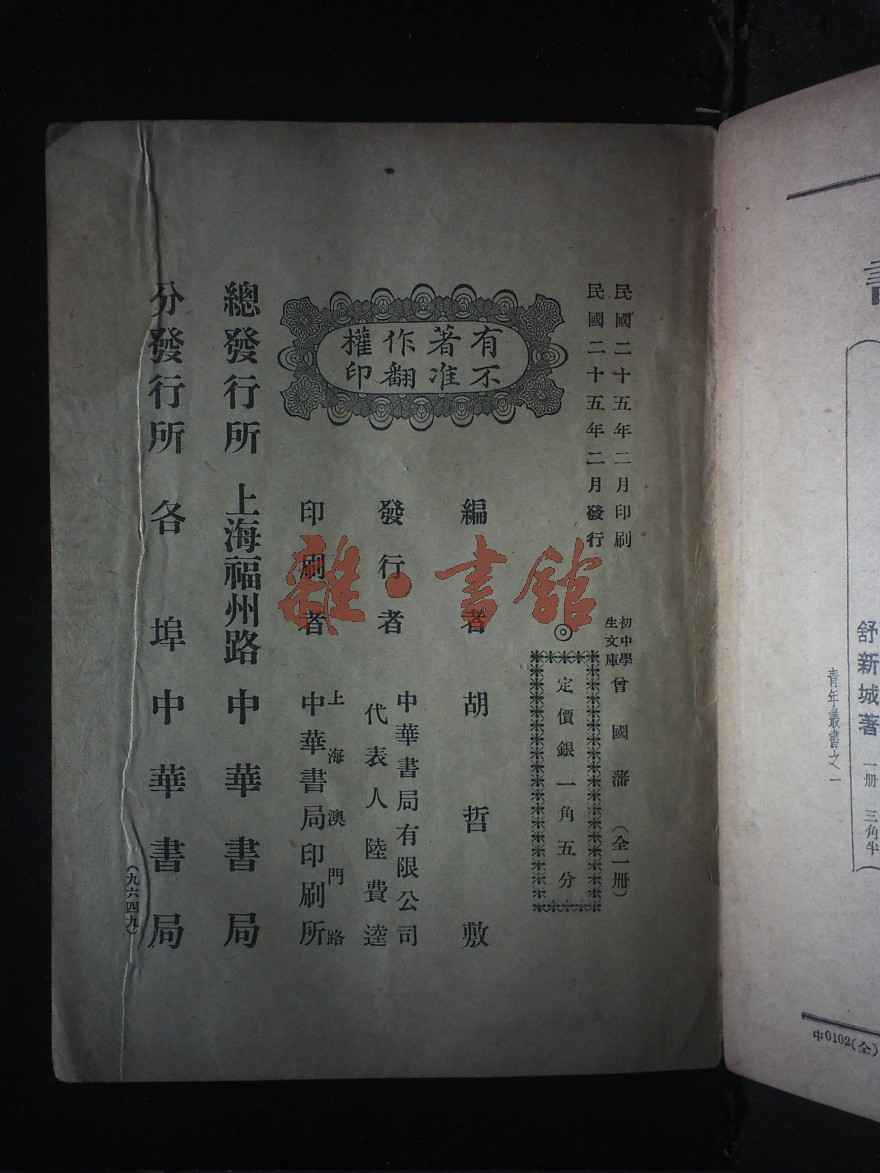 民國二十五年二月印刷
民國二十五年二月發行
初中學
生文庫
曾國藩
(全一册)
◎
定價銀一角五分
有不著准作翻權印
編者胡哲敷
發行者
中華書局有限公司
代表人陸費逵
印刷者
上海澳門路
中華書局印刷所
總發行所
上海福州路
中華書局
分發行所
各埠中華書局
(九六四九)
雜·書館
舒新城著
一册 三角半
青年叢書之一
中0102(全)